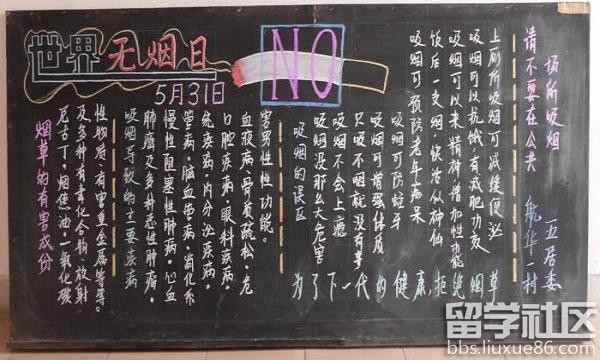 世界无烟日
5月31日
NO
烟草的有害成份
尼古丁·烟焦油·一氧化碳
及多种有毒化合物、放射
性物质、有害重金属等等。
吸烟导致的主要疾病
肺癌及多种恶性肿瘤·
慢性阻塞性肺病·心血
管病·脑血管病·消化系
统疾病·内分泌疾病·
口腔疾病·眼科疾病·
血液病、骨质疏松、危
害男性性功能。
吸烟的误区
吸烟没那么大危害
吸烟不会上瘾
只吸不咽就没有事
吸烟可增强体质
吸烟可防蛀牙
吸烟可预防老年痴呆
饭后一支烟 快活似神仙
吸烟可以来精神增加性功能
吸烟可以抗饿有减肥功效
上厕所吸烟可减缓便泌
为了下一代的健康,拒绝烟草
请不要在公共
场所吸烟
航华村
五居委
留学社区
bbs.liuxue86.com